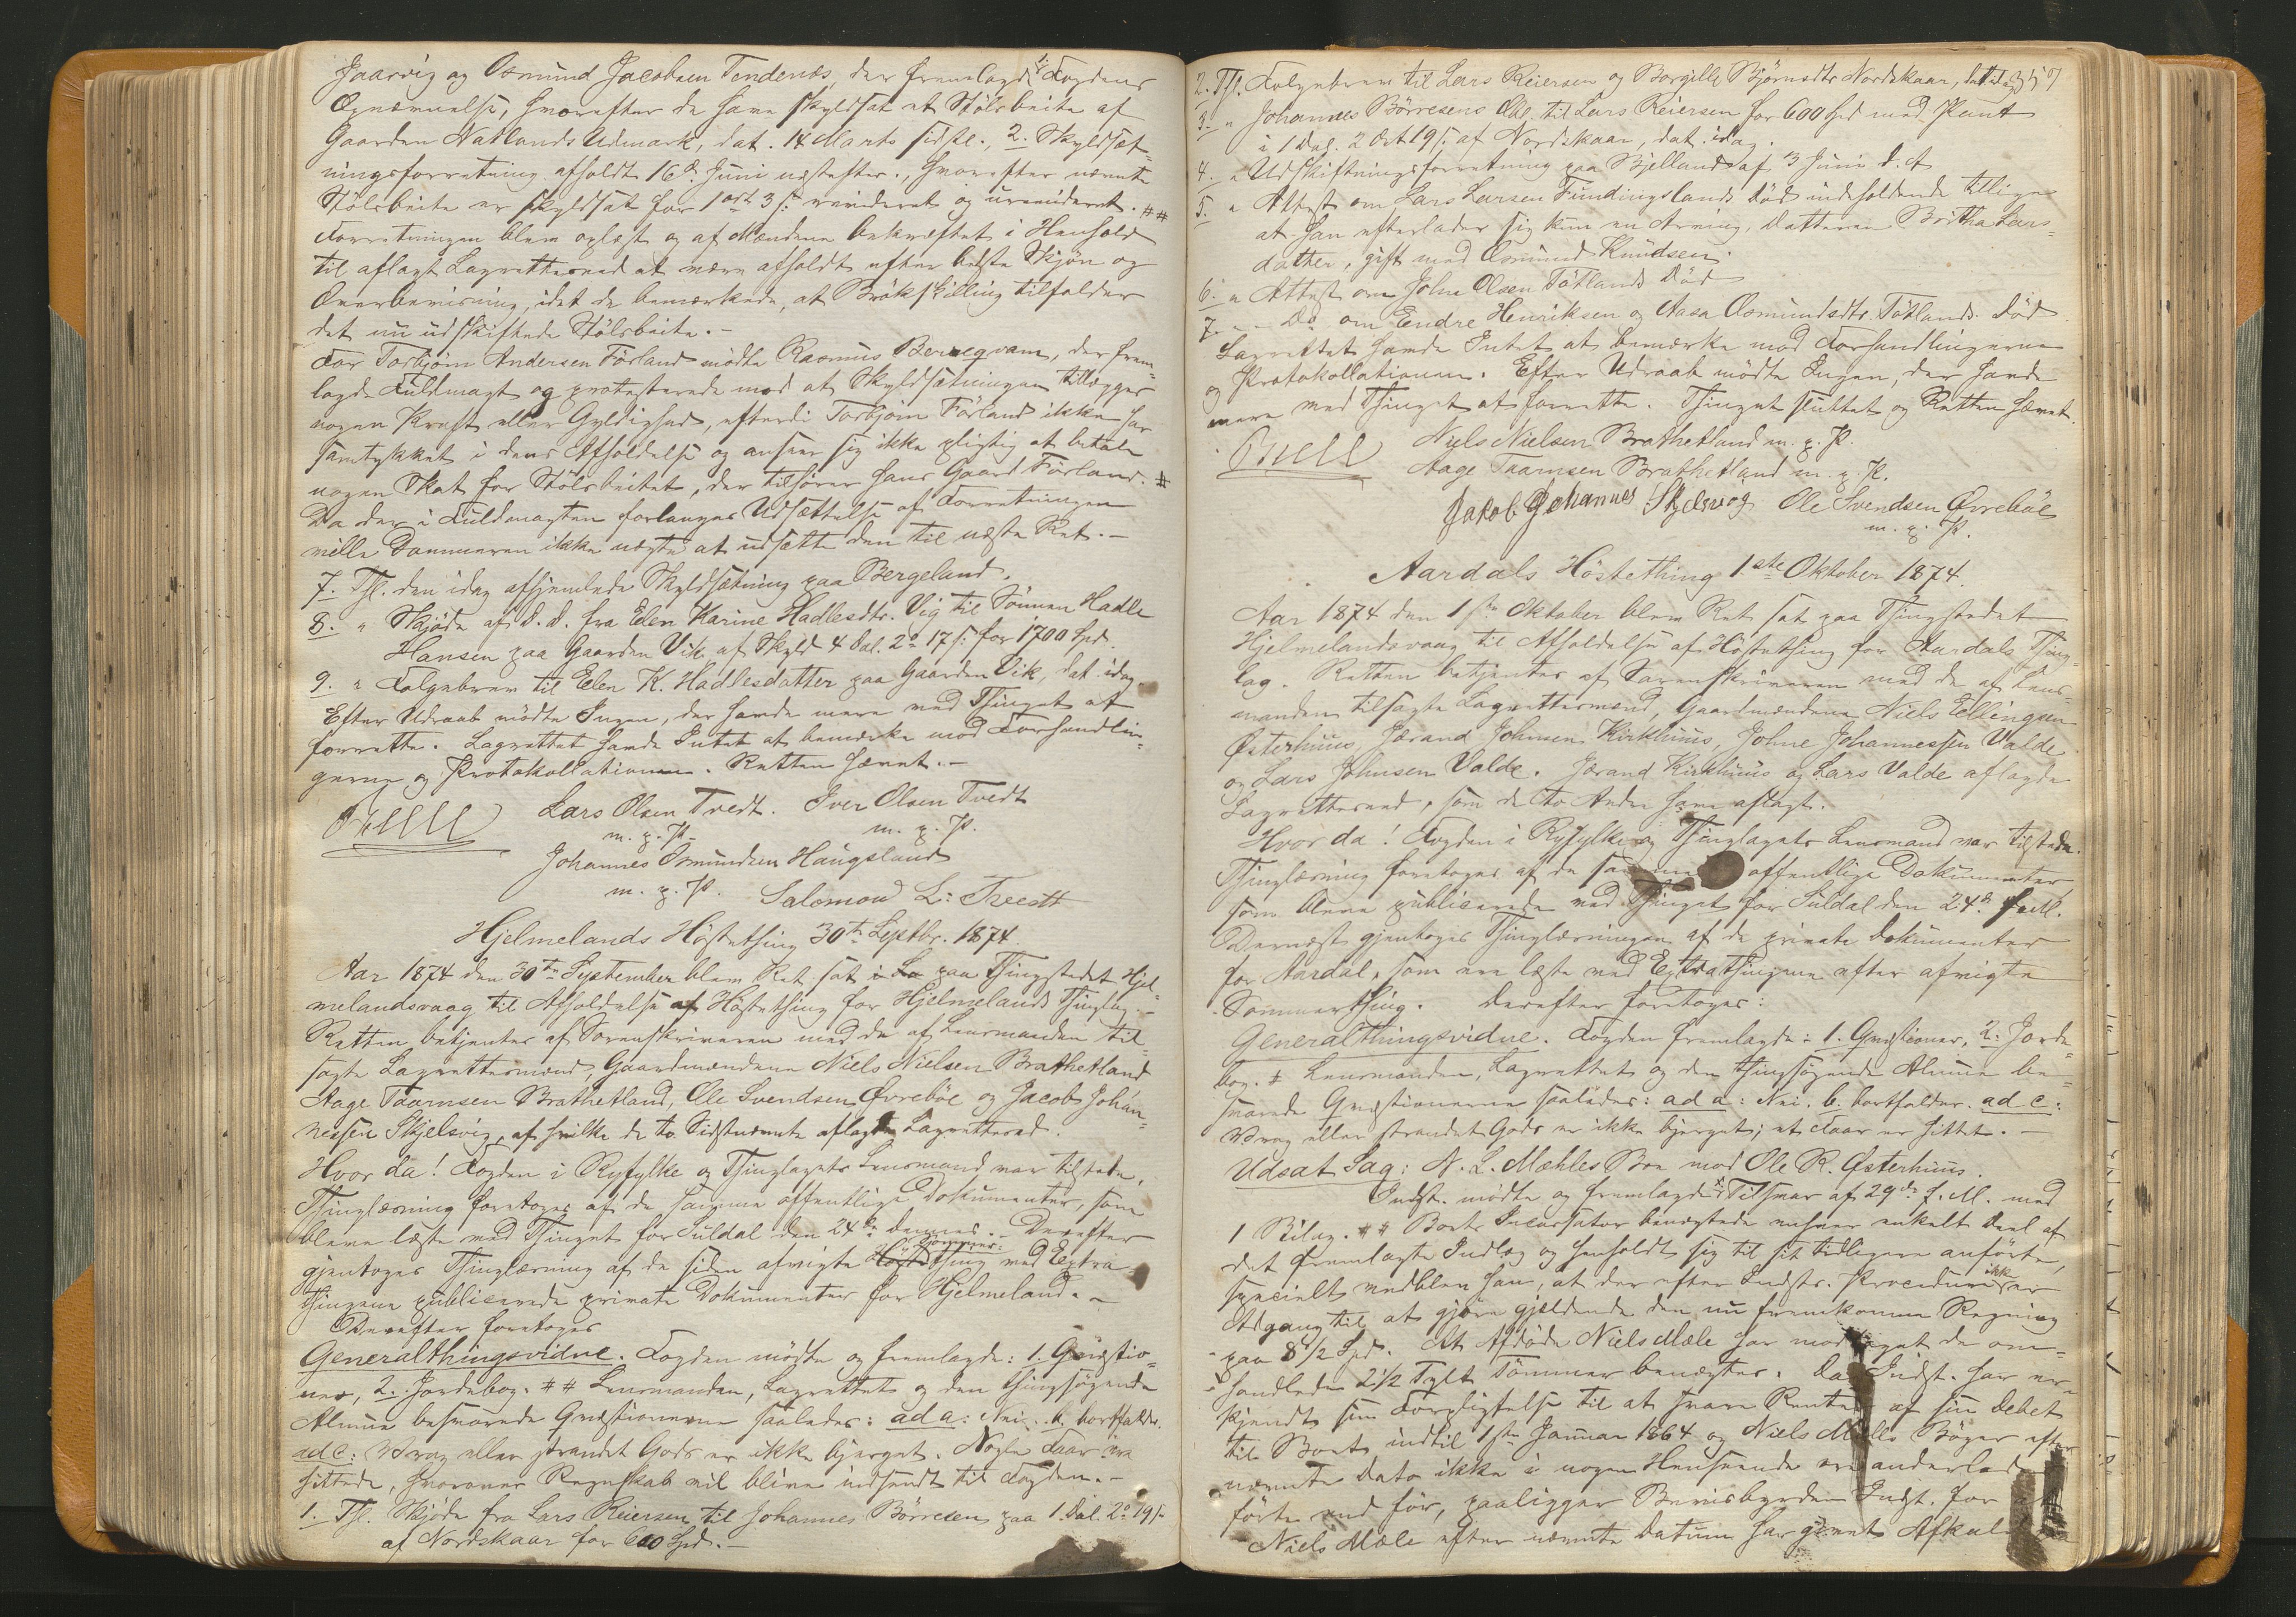 Jaarvig og Osmund Jacobsen Tendenes, der fremlagde 1. Fogdens
Opnævnelse, hvorefter de have skyldsat et Stölsbeite af
Gaarden Natlands Udmark, dat. 14 Marts sidstl., 2. Skyldsæt-
ningsforretning afholdt 16d. Juni næstefter., hvorefter nævnte
Stölsbeite er skyldsat for 1 ort 3 s. revideret og urevideret. ##
Forretningen blev oplæst og af Mændene bekræftet i Henhold
til aflagt Lagrettesed at være afholdt efter bedste Skjøn og
Overbevisning, idet de bemærkede, at Brökskilling tilfalder
det nu udskiftede Stölsbeite. -
For Torbjörn Andersen Förland mödte Rasmus Bergeqvam, der frem-
lagde Fuldmagt og protesterede mod at Skyldsætningen tillægges
nogen Kraft eller Gyldighed, efterdi Torbjörn Förland ikke har
samtykket i dens Afholdelse og anser sig ikke pligtig at betale
nogen Skat for Stölsbeitet, der tilhører hans Gaard Förland. #
Da der i Fuldmagten forlanges Udsættelse af Forretningen
vilde Dommeren ikke nægte at udsætte den til næste Ret. -
7. Thl. den idag afhjemlede Skyldsætning paa Bergeland.
8. " Skjöde af D. D. fra Elen Karine Hadlesdtr. Vig til Sönnen Hadle
Hansen paa Gaarden Vik af Skyld 4 Dal. 2 o 17 s. for 1700 Spd.
9. " Fölgebrev til Elen K. Hadlesdatter paa Gaarden Vik, dat. idag.
Efter Udraab mödte Ingen, der havde mere ved Thinget at
forrette. Lagrettet havde Intet at bemærke mod Forhandlin-
gerne og Protokollationen. Retten hævet. -
Lars Olsen Tvedt. Iver Olsen Tvedt
m. p. P. m. p. P.
Johannes Osmundsen Haugsland
m. p. P. Salomon L: Treedt
Hjelmelands Höstething 30te Septbr. 1874.
Aar 1874 den 30te September blev Ret sat i La paa Thingstedet Hjel-
melandsvaag til Afholdelse af Höstething for Hjelmelands Thinglag. -
Retten betjentes af Sorenskriveren med de af Lensmanden til-
sagte Lagrettesmænd, Gaardmændene Niels Nielsen Brathetland
Aage Taarnsen Brathetland, Ole Svendsen Øvreböe og Jacob Johan-
nessen Skjelsvig, af hvilke de to Sidstnævnte aflagde Lagrettesed.
Hvor da! Fogden i Ryfylke og Thinglagets Lensmand var tilstede,
Thinglæsning foretoges af de samme offentlige Dokumenter, som
bleve læste ved Thinget for Suldal den 24de dennes. - Derefter
gjentoges Thinglæsning af de siden afvigte Höste Sommerthing ved Extra
thingene publicerede private Dokumenter for Hjelmeland. -
Derefter foretoges
Generalthingsvidne. Fogden mödte og fremlagde: 1. Quæstio-
ner, 2. Jordebog. ## Lensmanden, Lagrettet og den thingsögende
Almue besvarede Quæstionerne saaledes: ad a: Nei. b. bortfalder.
ad c: Vrag eller strandet Gods er ikke bjerget. Nogle Faar ere
hittede, hvorover Regnskab vil blive indsendt til Fogden. -
1. Thl. Skjöde fra Lars Reiersen til Johannes Börresen paa 1 Dal. 2 o 19 s.
af Nordskaar for 600 Spd. -
2. Thl. Fölgebrev til Lars Reiersen og Borgille Björnsdtr. Nordskaar, dat. idag 357
3. " Johannes Börresens Obl. til Lars Reiersen for 600 Spd med Pant
i 1 Dal. 2 Ort 19 s. af Nordskaar, dat. idag.
4. " Udskiftningsforretning paa Bjelland af 3 Juni d. A.
5. " Attest om Lars Larsen Fundingslands Död indeholdende tillige
at han efterlader sig kun en Arving, Datteren Britha Lars-
datter, gift med Osmund Knudsen.
6. " Attest om John Olsen Tötlands Död
7. - - Do om Endre Henriksen og Aasa Osmundsdtr. Tötlands Död
Lagrettet havde Intet at bemærke mod Forhandlingerne
og Protokollationen. Efter Udraab mödte Ingen, der havde
mere ved Thinget at forrette. Thinget sluttet og Retten hævet.
Niels Nielsen Brathetland m. p. P.
Aage Taarnsen Brathetland m. p. P.
Jakob Johannes Skjelsvog Ole Svendsen Øvreböe
m. p. P.
Aardals Höstething 1ste Oktober 1874.
Aar 1874 den 1ste Oktober blev Ret sat paa Thingstedet
Hjelmelandsvaag til Afholdelse af Höstething for Aardals Thing-
lag. Retten betjentes af Sorenskriveren med de af Lens-
manden tilsagte Lagrettesmænd, Gaardmændene Niels Ellingsen
Østerhuus, Jærand Johnsen Kirkhuus, Johne Johannessen Valde
og Lars Johnsen Valde. Jærand Kirkhuus og Lars Valde aflagde
Lagrettesed, som de to Andre have aflagt.
Hvor da! Fogden i Ryfylke og Thinglagets Lensmand var tilstede.
Thinglæsning foretoges af de samme offentlige Dokumenter
som bleve publicerede ved Thinget for Suldal den 24d. f. M.
Dernæst gjentoges Thinglæsningen af de private Dokumenter
for Aardal, som ere læste ved Extrathingene efter afvigte
Sommerthing. Derefter foretoges:
Generalthingsvidne. Fogden fremlagde: 1. Quæstioner, 2: Jorde-
bog. # Lensmanden, Lagrettet og den thingsögende Almue be-
svarede Quæstionerne saaledes: ad a: Nei. b. bortfalder. ad c:
Vrag eller strandet Gods er ikke bjerget; et Faar er hittet. -
Udsat Sag: N. L. Mæhles Boe mod Ole R. Østerhuus.
Indst. mödte og fremlagde Tilsvar af 29de f. M. med
1 Bilag. ## Boets Incassator benægtede enhver enkelt Deel af
det fremlagte Indlæg og henholdt sig til sit tidligere anförte,
specielt vedblev han, at der efter Indst. Procedure ikke er
Adgang til at gjöre gjældende den nu fremkomne Regning
paa 8 1/2 Spd. At Afdöde Niels Mæle har modtaget de om-
handlede 2 1/2 Tylt Tömmer benægtes. Da Indst. har er-
kjendt sin Forpligtelse til at svare Renter af sin Debet
til Boet indtil 1ste Januar 1864 og Niels Mæles Böger efter
nævnte Dato ikke i nogen Henseende ere anderledes
förte end för, paaligger Bevisbyrden Indst. for at
Niels Mæle efter nævnte Datum har givet Afkald